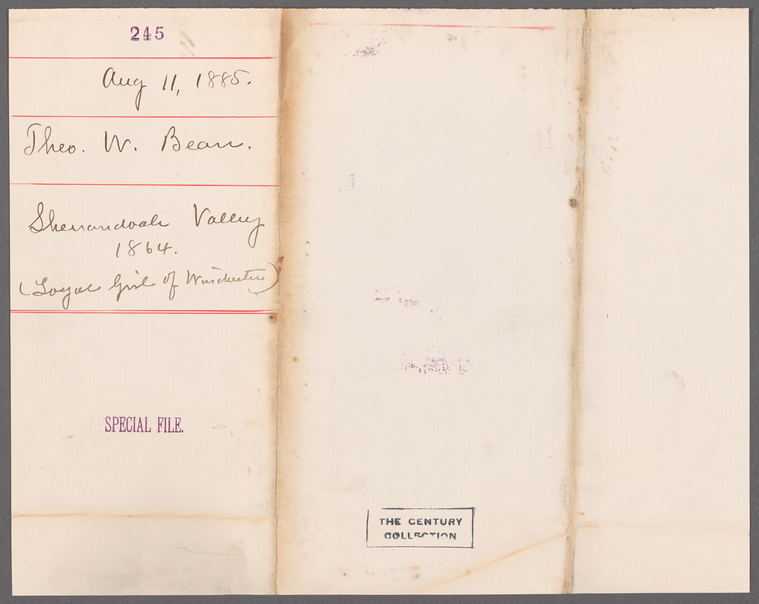 245
Aug 11, 1885.
Theo. W. Bean.
Shenandoah Valley
1864.
(Loyal Girl of Winchester)
SPECIAL FILE.
THE CENTURY
COLLECTION